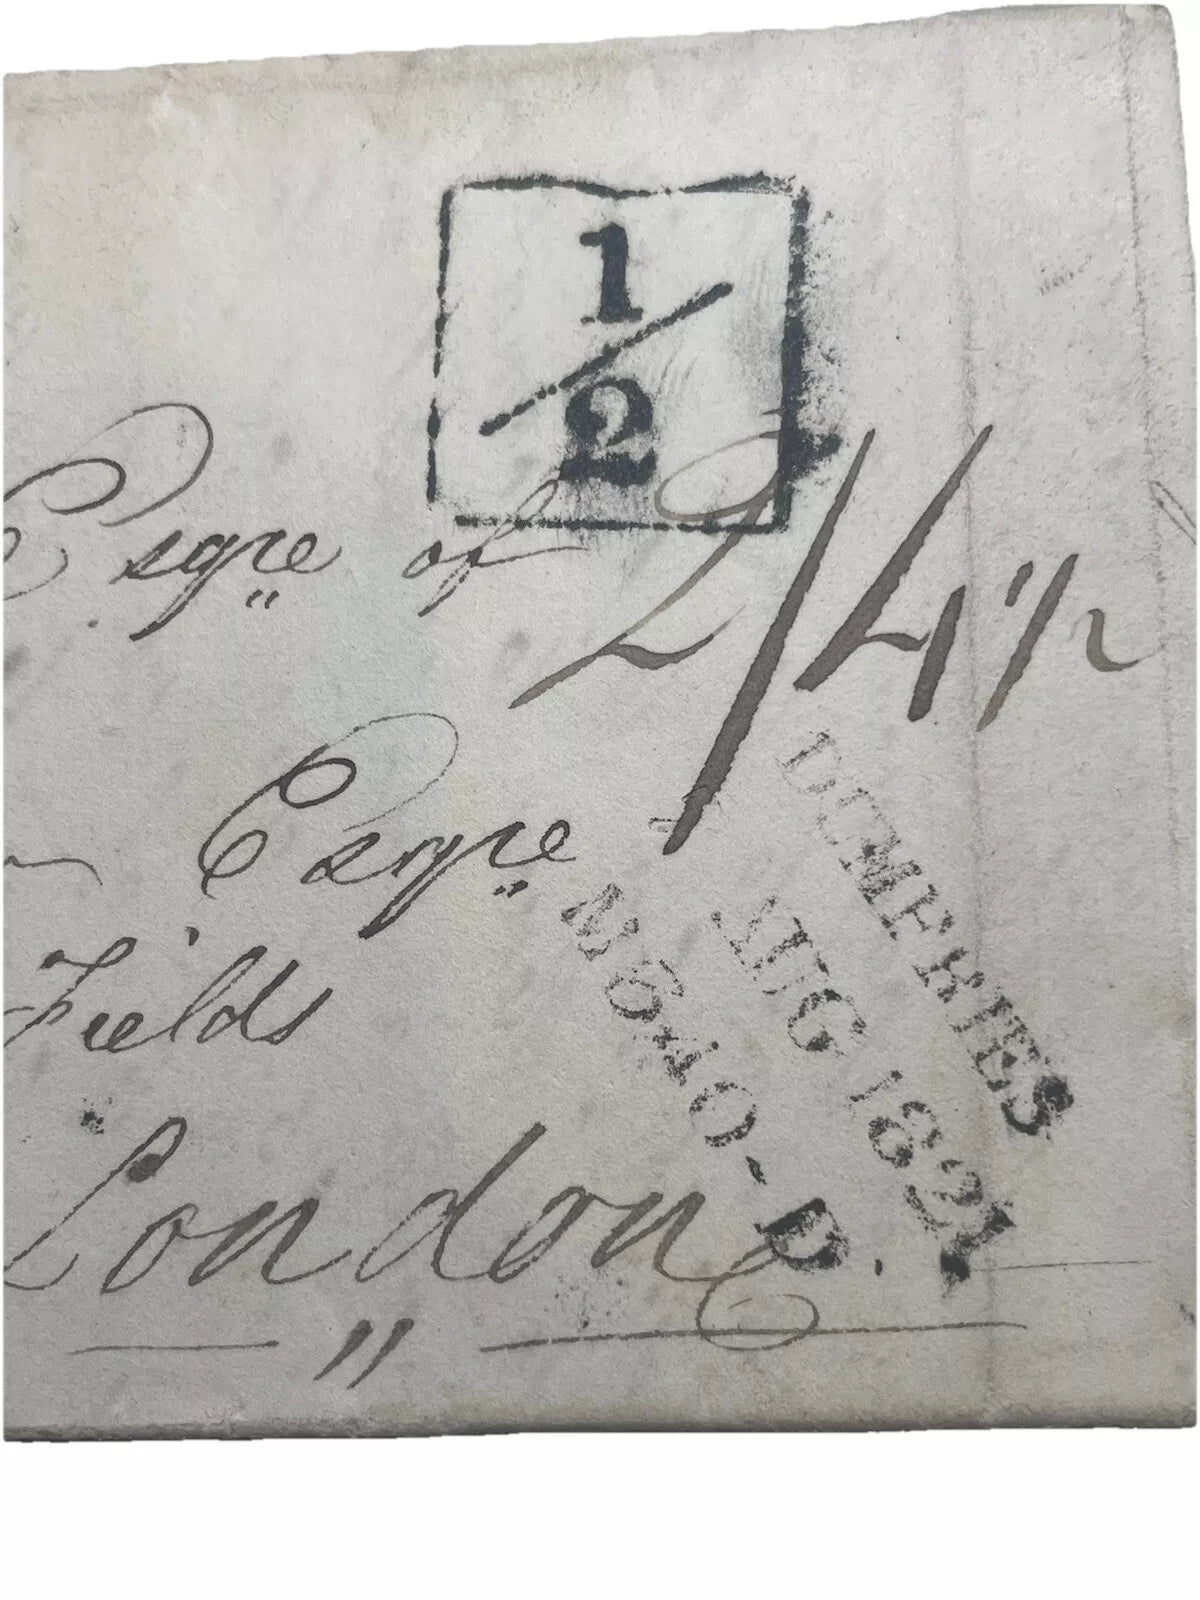 1/2
Esqre of
2/4 1/2
Esqre
Fields
London
DUMFRIES
AUG 1821
340-D.